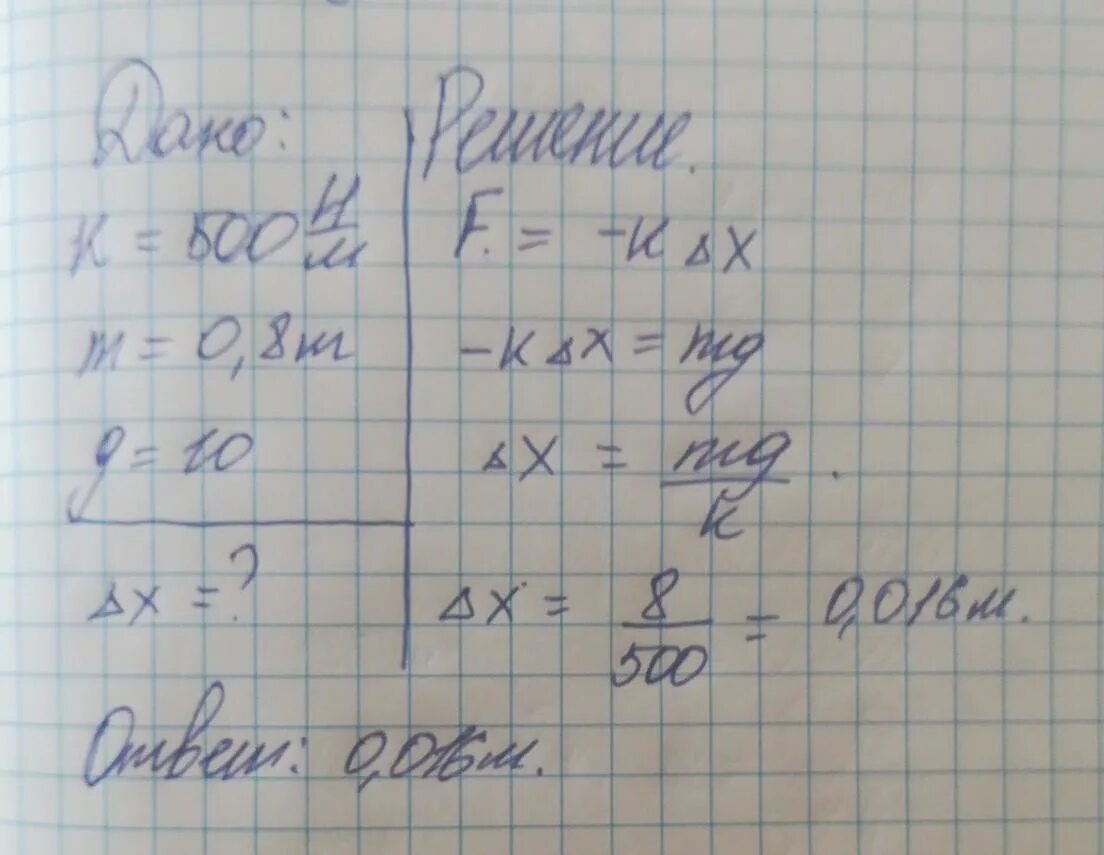 Дано:
к = 500 Н/м
m = 0,8т
g = 10
Δx = ?
Решение.
F. = -к Δx
-к Δx = mg
Δx = mg/k .
Δx = 8/500 = 0,016м.
Ответ: 0,016м.